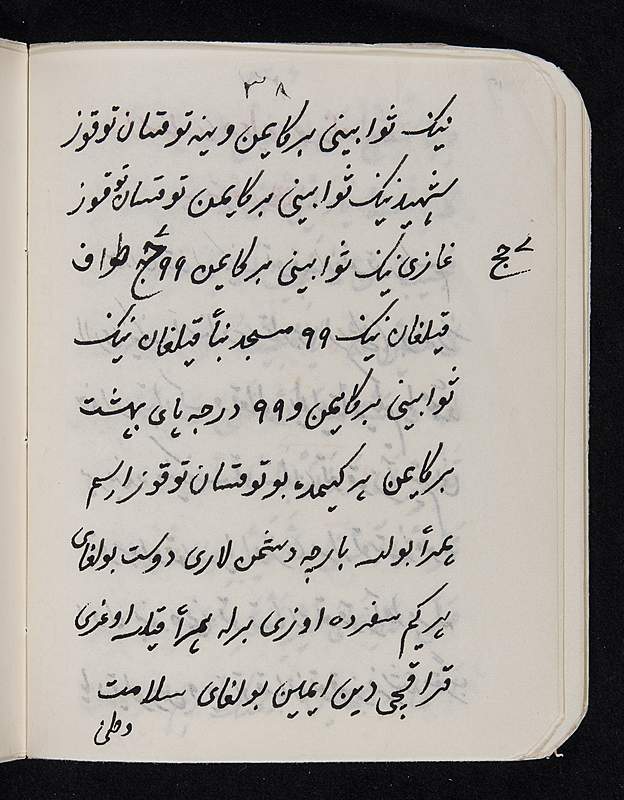 ۳۸
نیک ثوابینی بیرکایمن وینه توقسان توقوز
شهیدنیک ثوابینی بیرکایمن توقسان توقوز
غازی نیک ثوابینی بیرکایمن ۹۹ حج طواف
حج
قیلغان نیک ۹۹ مسجد بنأ قیلغان نیک
ثوابینی بیرکایمن و ۹۹ درجه پای بهشت
بیرکایمن هر کیمده بو توقسان توقوز اسم
همرأ بولسه بارچه دشمن لاری دوست بولغای
هر کیم سفرده اوزی برله همرأ قیلسه اوغری
قراقچی دین ایمین بولغای سلامت
وطن